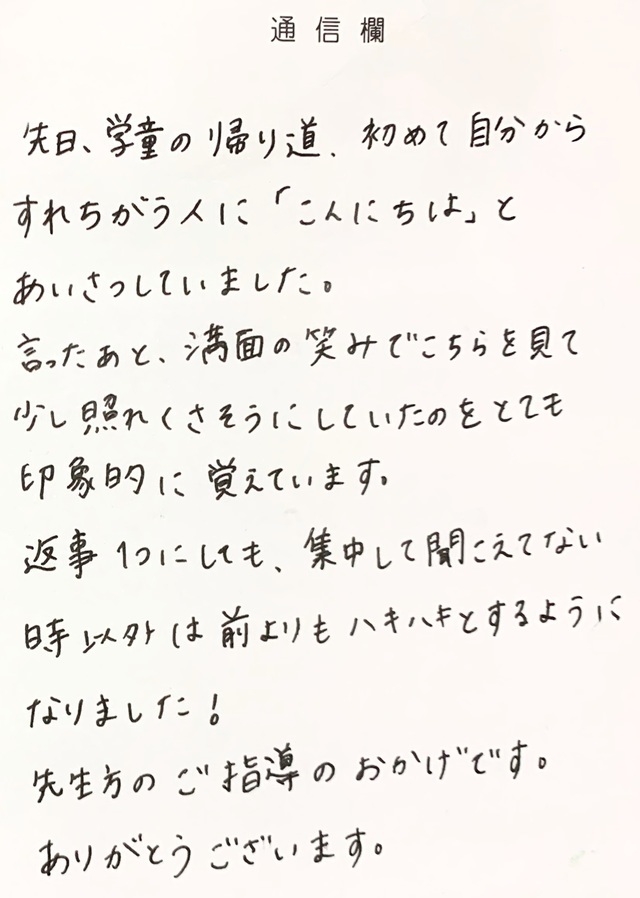 通信欄
先日、学童の帰り道、初めて自分から
すれちがう人に「こんにちは」と
あいさつしていました。
言ったあと、満面の笑みでこちらを見て
少し照れくさそうにしていたのをとても
印象的に覚えています。
返事1つにしても、集中して聞こえてない
時以外は前よりもハキハキとするように
なりました!
先生方のご指導のおかげです。
ありがとうございます。